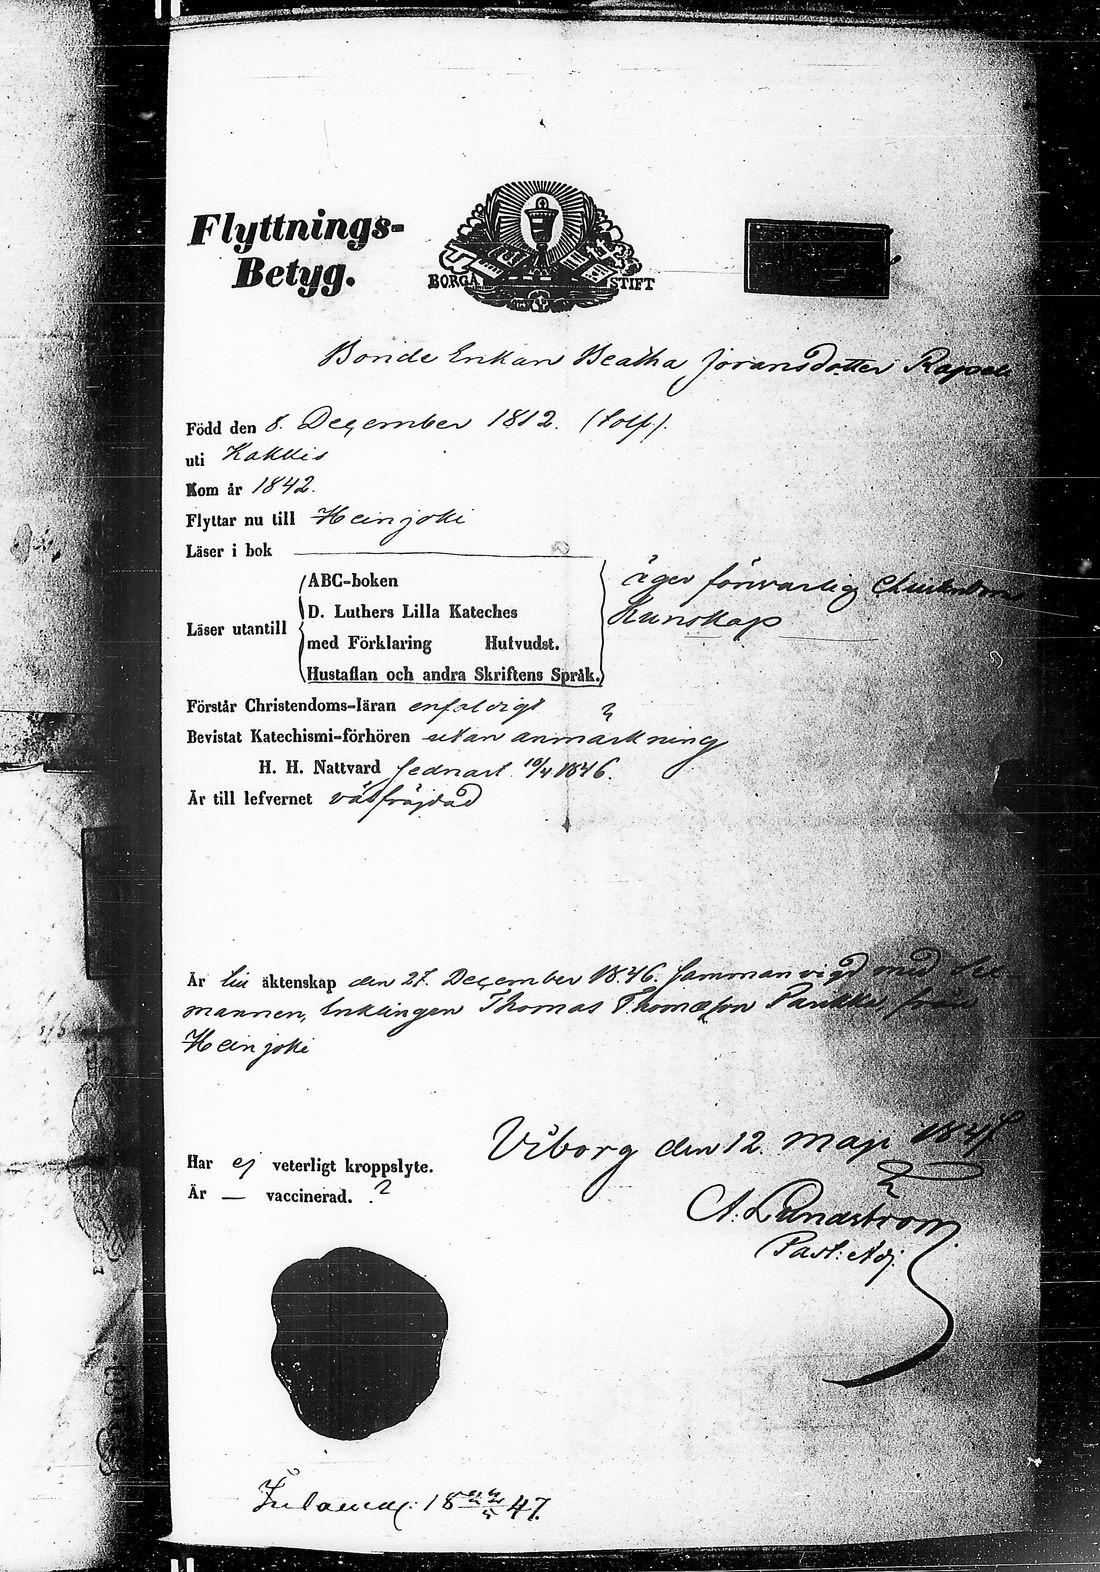 Flyttnings-
Betyg.
BORGÅ STIFT
Bonde Enkan Beatha Jöransdotter
Född den 8. December 1812. (tolf).
uti Kakkis
Kom år 1842.
Flyttar nu till Heinjoki
Läser i bok
Läser utantill
ABC-boken
D. Luthers Lilla Kateches
med Förklaring Hufvudst.
Hustaflan och andra Skriftens Språk.
äger försvarlig Christendoms
Kunskap
Förstår Christendoms-läran enfaldigt
Bevistat Katechismi-förhören utan anmärkning
H. H. Nattvard sednast 10/4 1846.
Är till lefvernet välfräjdad
Är till äktenskap den 27. December 1846. sammanvigd med
mannen, Enklingen Thomas Thomasson från
Heinjoki
Viborg den 12. Maji 1847
Har ej veterligt kroppslyte.
Är — vaccinerad. ?
A. Lundström.
Past: Adj.
47.